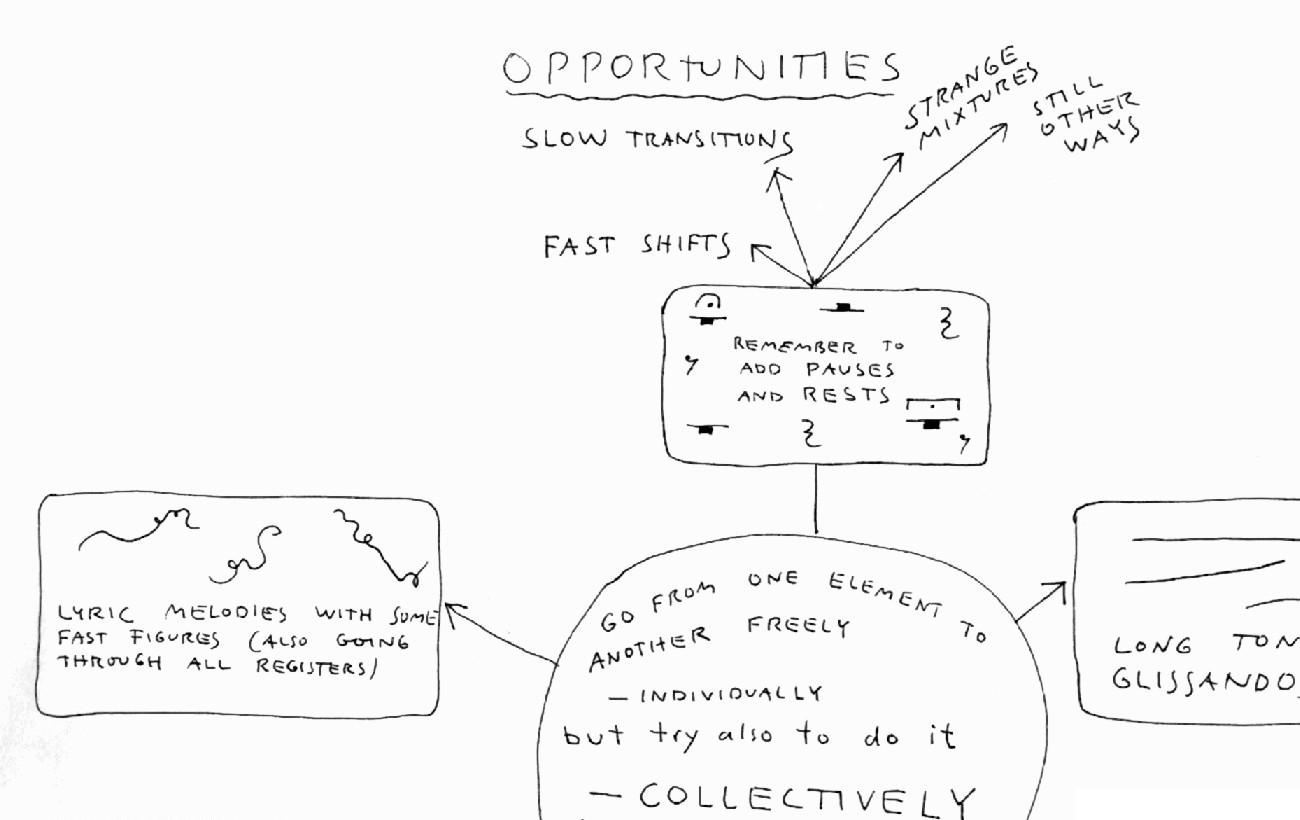 OPPORTUNITIES
STRANGE
MIXTURES
STILL
OTHER
WAYS
SLOW TRANSITIONS
FAST SHIFTS
REMEMBER TO
ADD PAUSES
AND RESTS
LYRIC MELODIES WITH SOME
FAST FIGURES (ALSO GOING
THROUGH ALL REGISTERS)
GO FROM ONE ELEMENT TO
ANOTHER FREELY
— INDIVIDUALLY
but try also to do it
— COLLECTIVELY
LONG TON
GLISSANDO